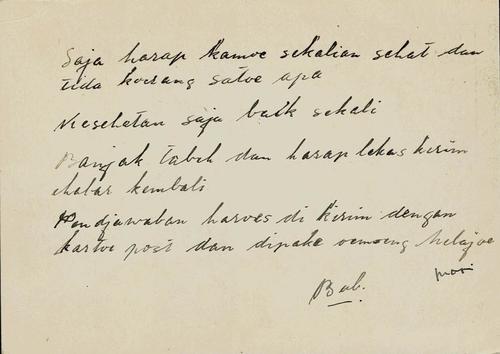 Saja harap kamoe sekalian sehat dan
tida koerang satoe apa
Kesehetan saja baik sekali
Banjak tabeh dan harap lekas kirim
chabar kembali
Pendjawaban haroes di kirim dengan
kartoe post dan dipake oemoeng Melajoe
Bob.